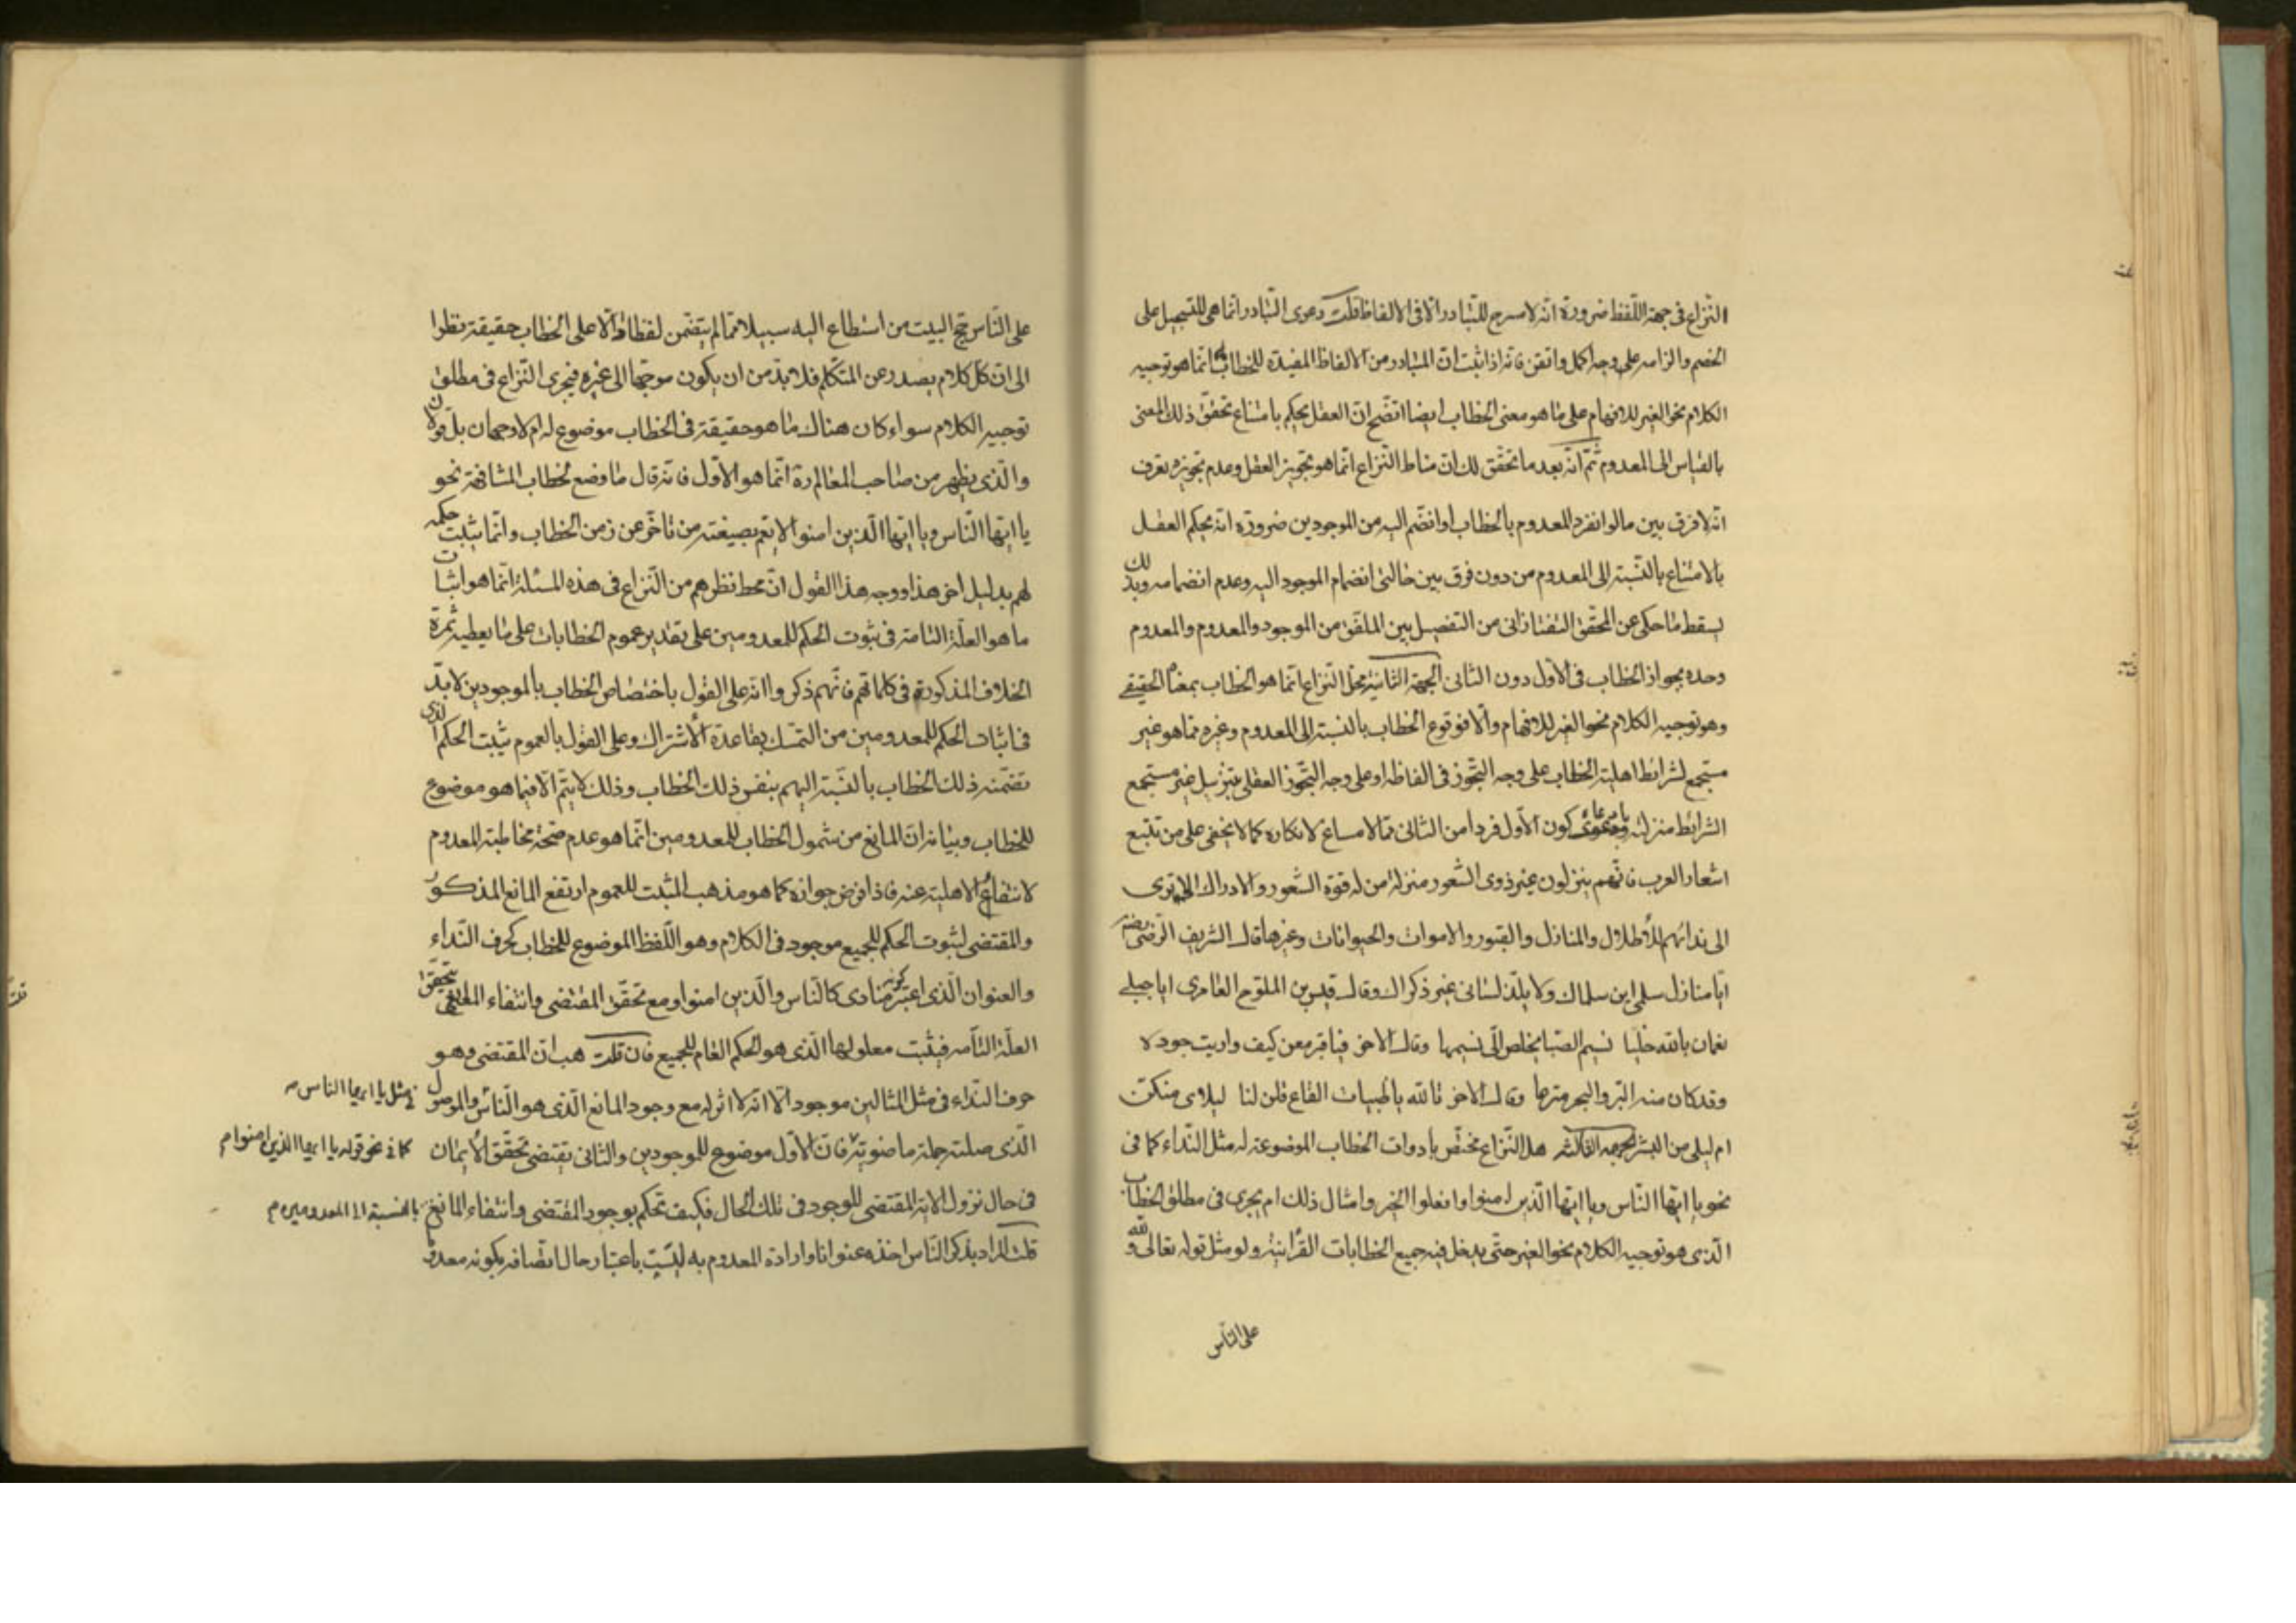 النّزاع فى جهة اللّفظ ضرورة انّه لا مسرح للتّبادر الّا فى الالفاظ قلت دعوى التّبادر انّما هى للتسجيل على
الخصم والزامه على وجه اكمل واتقن فانه اذا ثبت انّ المتبادر من الالفاظ المفيدة للخطاب انّما هو توجيه
الكلام نحو الغير للافهام على ما هو معنى الخطاب ايضا اتّضح انّ العقل يحكم بامتناع تحقّق ذلك المعنى
بالقياس الى المعدوم ثمّ انّه بعد ما تحقّق لك انّ مناط النّزاع انّما هو تجويز العقل وعدم تجويزه تعرف
انّه لا فرق بين ما لو انفرد المعدوم بالخطاب او انضمّ اليه من الموجودين ضرورة انّه يحكم العقل
بالامتناع بالنّسبة الى المعدوم من دون فرق بين حالتى انضمام الموجود اليه وعدم انضمامه وبذلك
يسقط ما حكى عن المحقّق التفتازانى من التفصيل بين الملفّق من الموجود والمعدوم والمعدوم
وحده بجواز الخطاب فى الاوّل دون الثانى الجهة الثانية محلّ النّزاع انّما هو الخطاب بمعناه الحقيقى
وهو توجيه الكلام نحو الغير للافهام والّا فوقوع الخطاب بالنسبة الى المعدوم وغيره ممّا هو غير
مستجمع لشرائط اهلية الخطاب على وجه التجّوز فى الفاظه او على وجه التجّوز العقلى بتنزيل غير مستجمع
الشرائط منزلته كون الاوّل فردا من الثانى ممّا لا مساغ لانكاره كما لا يخفى على من تتبع
اشعار العرب فانّهم ينزلون غير ذوى الشعور منزلة من له قوّة الشّعور والادراك الا ترى
الى ندائهم للأطلال والمنازل والقبور والاموات والحيوانات وغيرها قال الشريف الرّضى رضه
ايا منازل سلمى اين سلماك ولا يلذّ لسانى غير ذكراك وقال قيس بن الملوّح العامرى ايا جبلى
نعمان بالله خلّيا نسيم الصّبا يخلص الىّ نسيمها وقال الاخر فيا قبر معن كيف واريت جوده
وقد كان منه البرّ والبحر مترعا وقال الاخر تالله يا ظبيات القاع قلن لنا ليلاى منكنّ
ام ليلى من البشر الجهة الثالثة هل النّزاع مختصّ بادوات الخطاب الموضوعة له مثل النّداء كما فى
نحو يا ايّها النّاس ويا ايّها الّذين امنوا وافعلوا الخير وامثال ذلك ام يجرى فى مطلق الخطاب
الّذى هو توجيه الكلام نحو الغير حتّى يدخل فيه جميع الخطابات القرآنيّة ولو مثل قوله تعالى ولله
على النّاس
على النّاس حجّ البيت من استطاع اليه سبيلا ممّا لم يتضمّن لفظا دالّا على الخطاب حقيقة نظرا
الى انّ كلّ كلام يصدر عن المتكلّم فلا بدّ من ان يكون موجّها الى غيره فيجرى النّزاع فى مطلق
توجيه الكلام سواء كان هناك ما هو حقيقة فى الخطاب موضوع له ام لا وجهان بل قولان
والّذى يظهر من صاحب المعالم ره انّما هو الاوّل فانّه قال ما وضع لخطاب المشافهة نحو
يا ايّها النّاس ويا ايّها الّذين امنوا لا يعم بصيغته من تأخّر عن زمن الخطاب وانّما يثبت حكمه
لهم بدليل اخر هذا ووجه هذا القول انّ محط نظرهم من النّزاع فى هذه المسئلة انّما هو اثبات
ما هو العلّة التامّة فى ثبوت الحكم للمعدومين على تقدير عموم الخطابات على ما يعطيه ثمرة
الخلاف المذكورة فى كلماتهم فانّهم ذكروا انّه على القول باختصاص الخطاب بالموجودين لا بدّ
فى اثبات الحكم للمعدومين من التمسّك بقاعدة الاشتراك وعلى القول بالعموم يثبت الحكم الذى
تضمّنه ذلك الخطاب بالنّسبة اليهم بنفس ذلك الخطاب وذلك لا يتمّ الّا فيما هو موضوع
للخطاب وبيانه انّ المانع من شمول الخطاب للمعدومين انّما هو عدم صحّة مخاطبة المعدوم
لانتفاء الاهلية عنه فاذا فرض جوازه كما هو مذهب المثبت للعموم ارتفع المانع المذكور
والمقتضى لثبوت الحكم للجميع موجود فى الكلام وهو اللّفظ الموضوع للخطاب كحرف النّداء
والعنوان الّذى اعتبر كونه منادى كالنّاس والّذين امنوا ومع تحقّق المقتضى وانتفاء المانع يتحقّق
العلّة التّامّه فيثبت معلولها الّذى هو الحكم العام للجميع فان قلت هب انّ المقتضى وهو
حرف النّداء فى مثل المثالين موجود الّا انّه لا اثر له مع وجود المانع الّذى هو النّاس والموصول
فى مثل يا ايها الناس
الّذى صلته جملة ماضويّة فانّ الاوّل موضوع للموجودين والثانى يقتضى تحقّق الايمان
كما فى نحو قوله يا ايها الذين امنوا م
فى حال نزول الاية المقتضى للوجود فى تلك الحال فكيف تحكم بوجود المقتضى وانتفاء المانع
بالنسبة الى المعدومين م
قلت المراد بذكر النّاس اخذه عنوانا وارادة المعدوم به ليست باعتبار حال اتّصافه بكونه معدوم